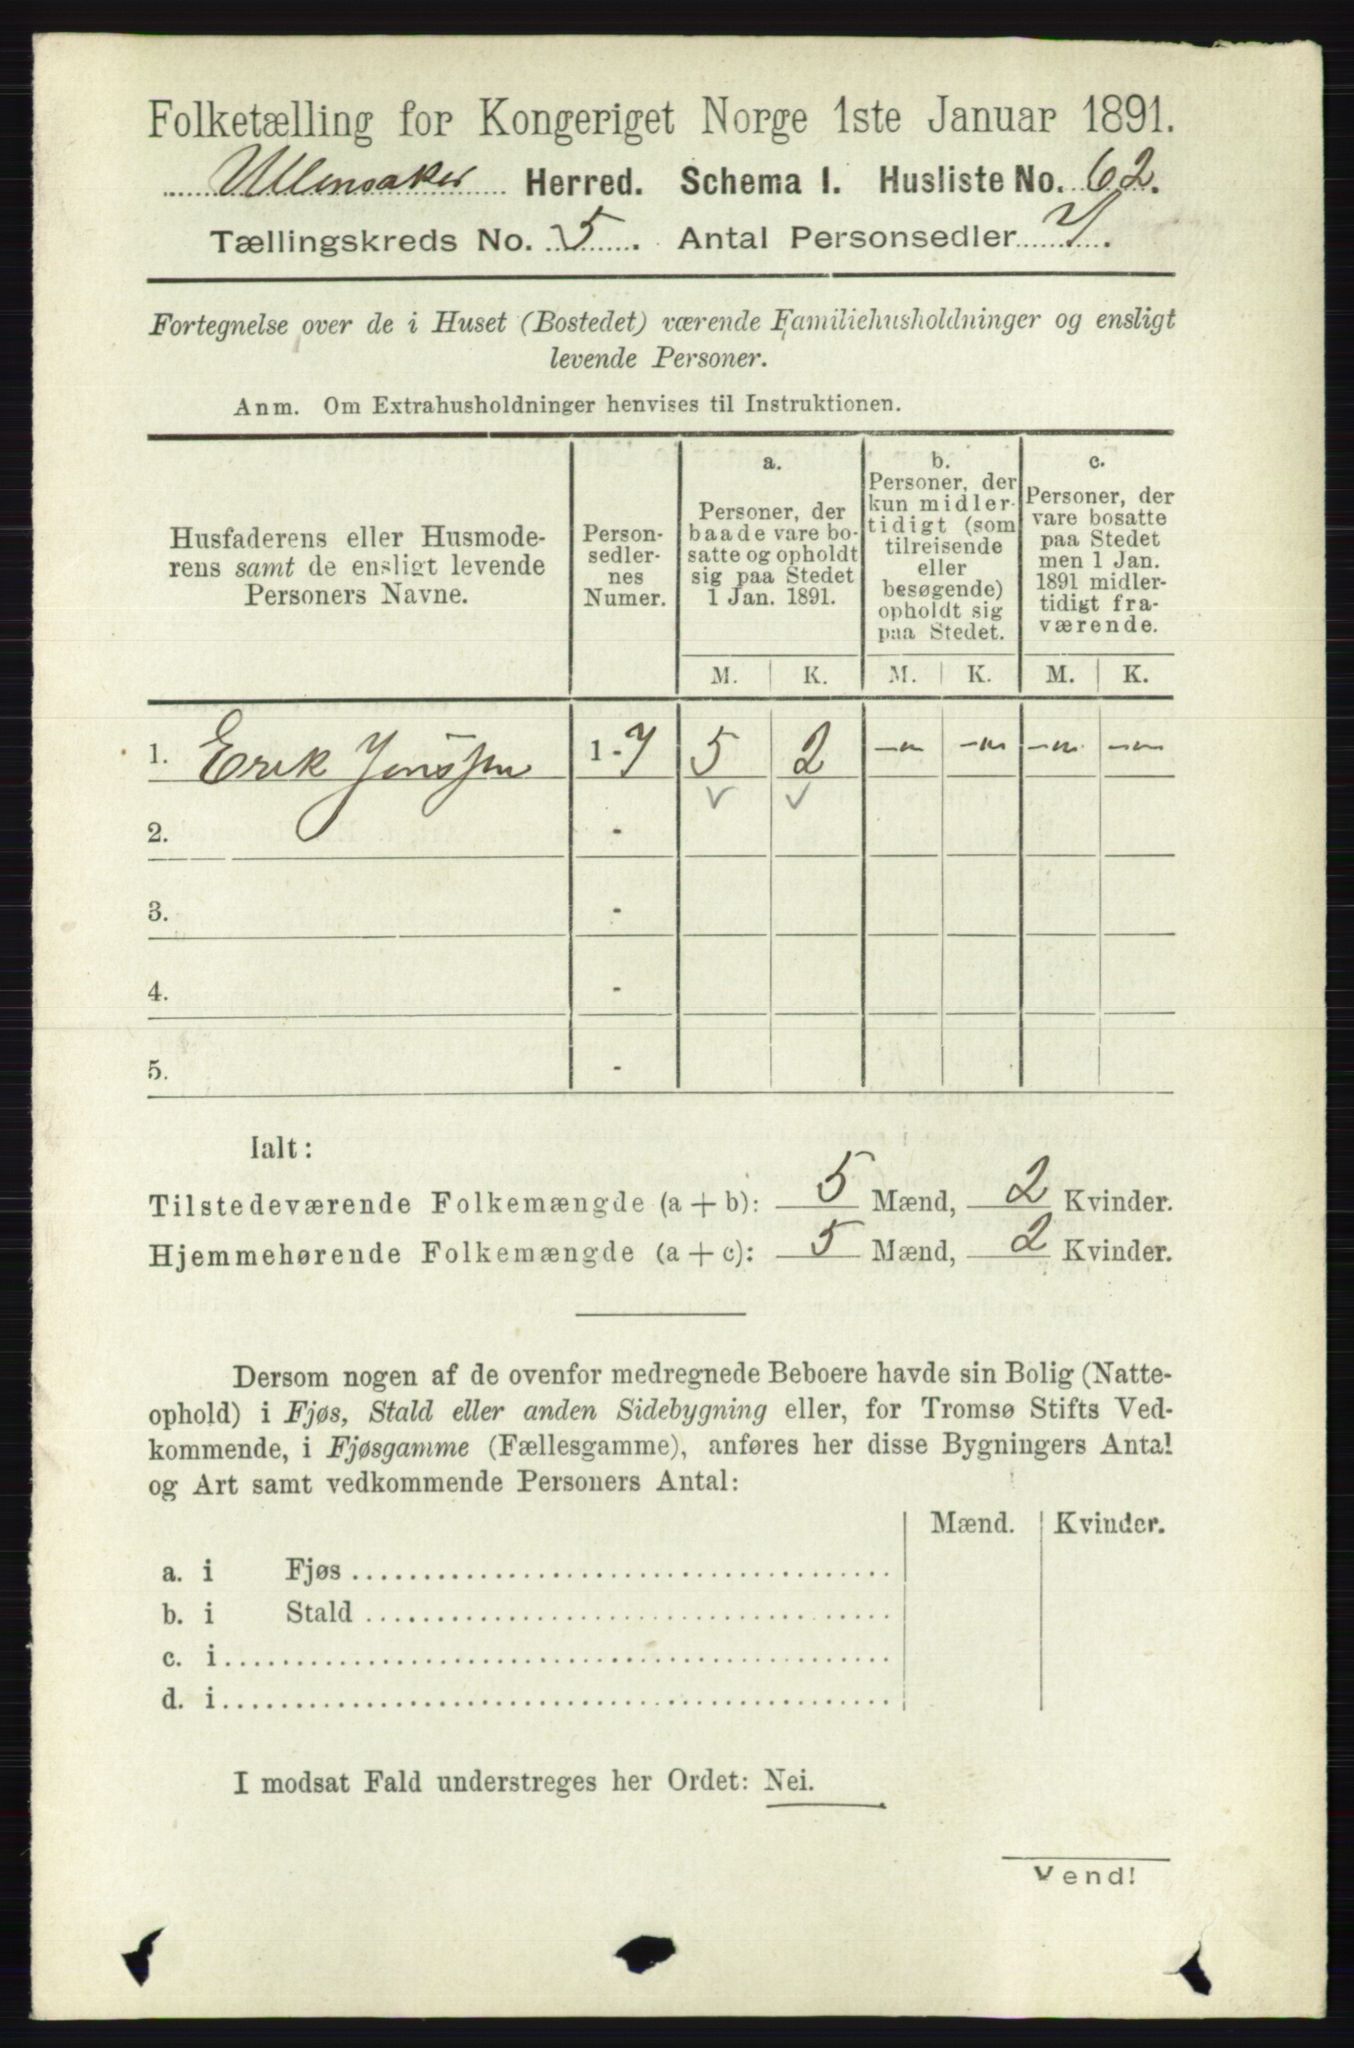 Folketælling for Kongeriget Norge 1ste Januar 1891.
Ullensaker Herred. Schema I. Husliste No. 62.
Tællingskreds No. 5. Antal Personsedler 7.
Fortegnelse over de i Huset (Bostedet) værende Familiehusholdninger og ensligt
levende Personer.
Anm. Om Extrahusholdninger henvises til Instruktionen.
Husfaderens eller Husmode-
rens samt de ensligt levende
Personers Navne.
Person-
sedler-
nes
Numer.
a.
Personer, der
baade vare bo-
satte og opholdt
sig paa Stedet
1 Jan. 1891.
b.
Personer, der
kun midler-
tidigt (som
tilreisende
eller
besøgende)
opholdt sig
paa Stedet.
c.
Personer, der
vare bosatte
paa Stedet
men 1 Jan.
1891 midler-
tidigt fra-
værende.
M. K. M. K. M. K.
1. Erik Jonssen 1-7 5 2 -„- -„- -„- -„-
2. -
3. -
4. -
5. -
Ialt:
Tilstedeværende Folkemængde (a + b): 5 Mænd, 2 Kvinder.
Hjemmehørende Folkemængde (a + c): 5 Mænd, 2 Kvinder.
Dersom nogen af de ovenfor medregnede Beboere havde sin Bolig (Natte-
ophold) i Fjøs, Stald eller anden Sidebygning eller, for Tromsø Stifts Ved-
kommende, i Fjøsgamme (Fællesgamme), anføres her disse Bygningers Antal
og Art samt vedkommende Personers Antal:
Mænd. Kvinder.
a. i Fjøs
b. i Stald
c. i
d. i
I modsat Fald understreges her Ordet: Nei.
Vend!